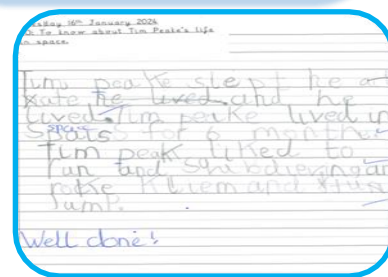 sday 16th January 2024
O: To know about Tim Peake's life
n space.
Tim peake slept he a
he lived and he
lived. Tim peake lived in
space
for 6 months
Tim peak liked to
run and
and
Jump.
Well done!